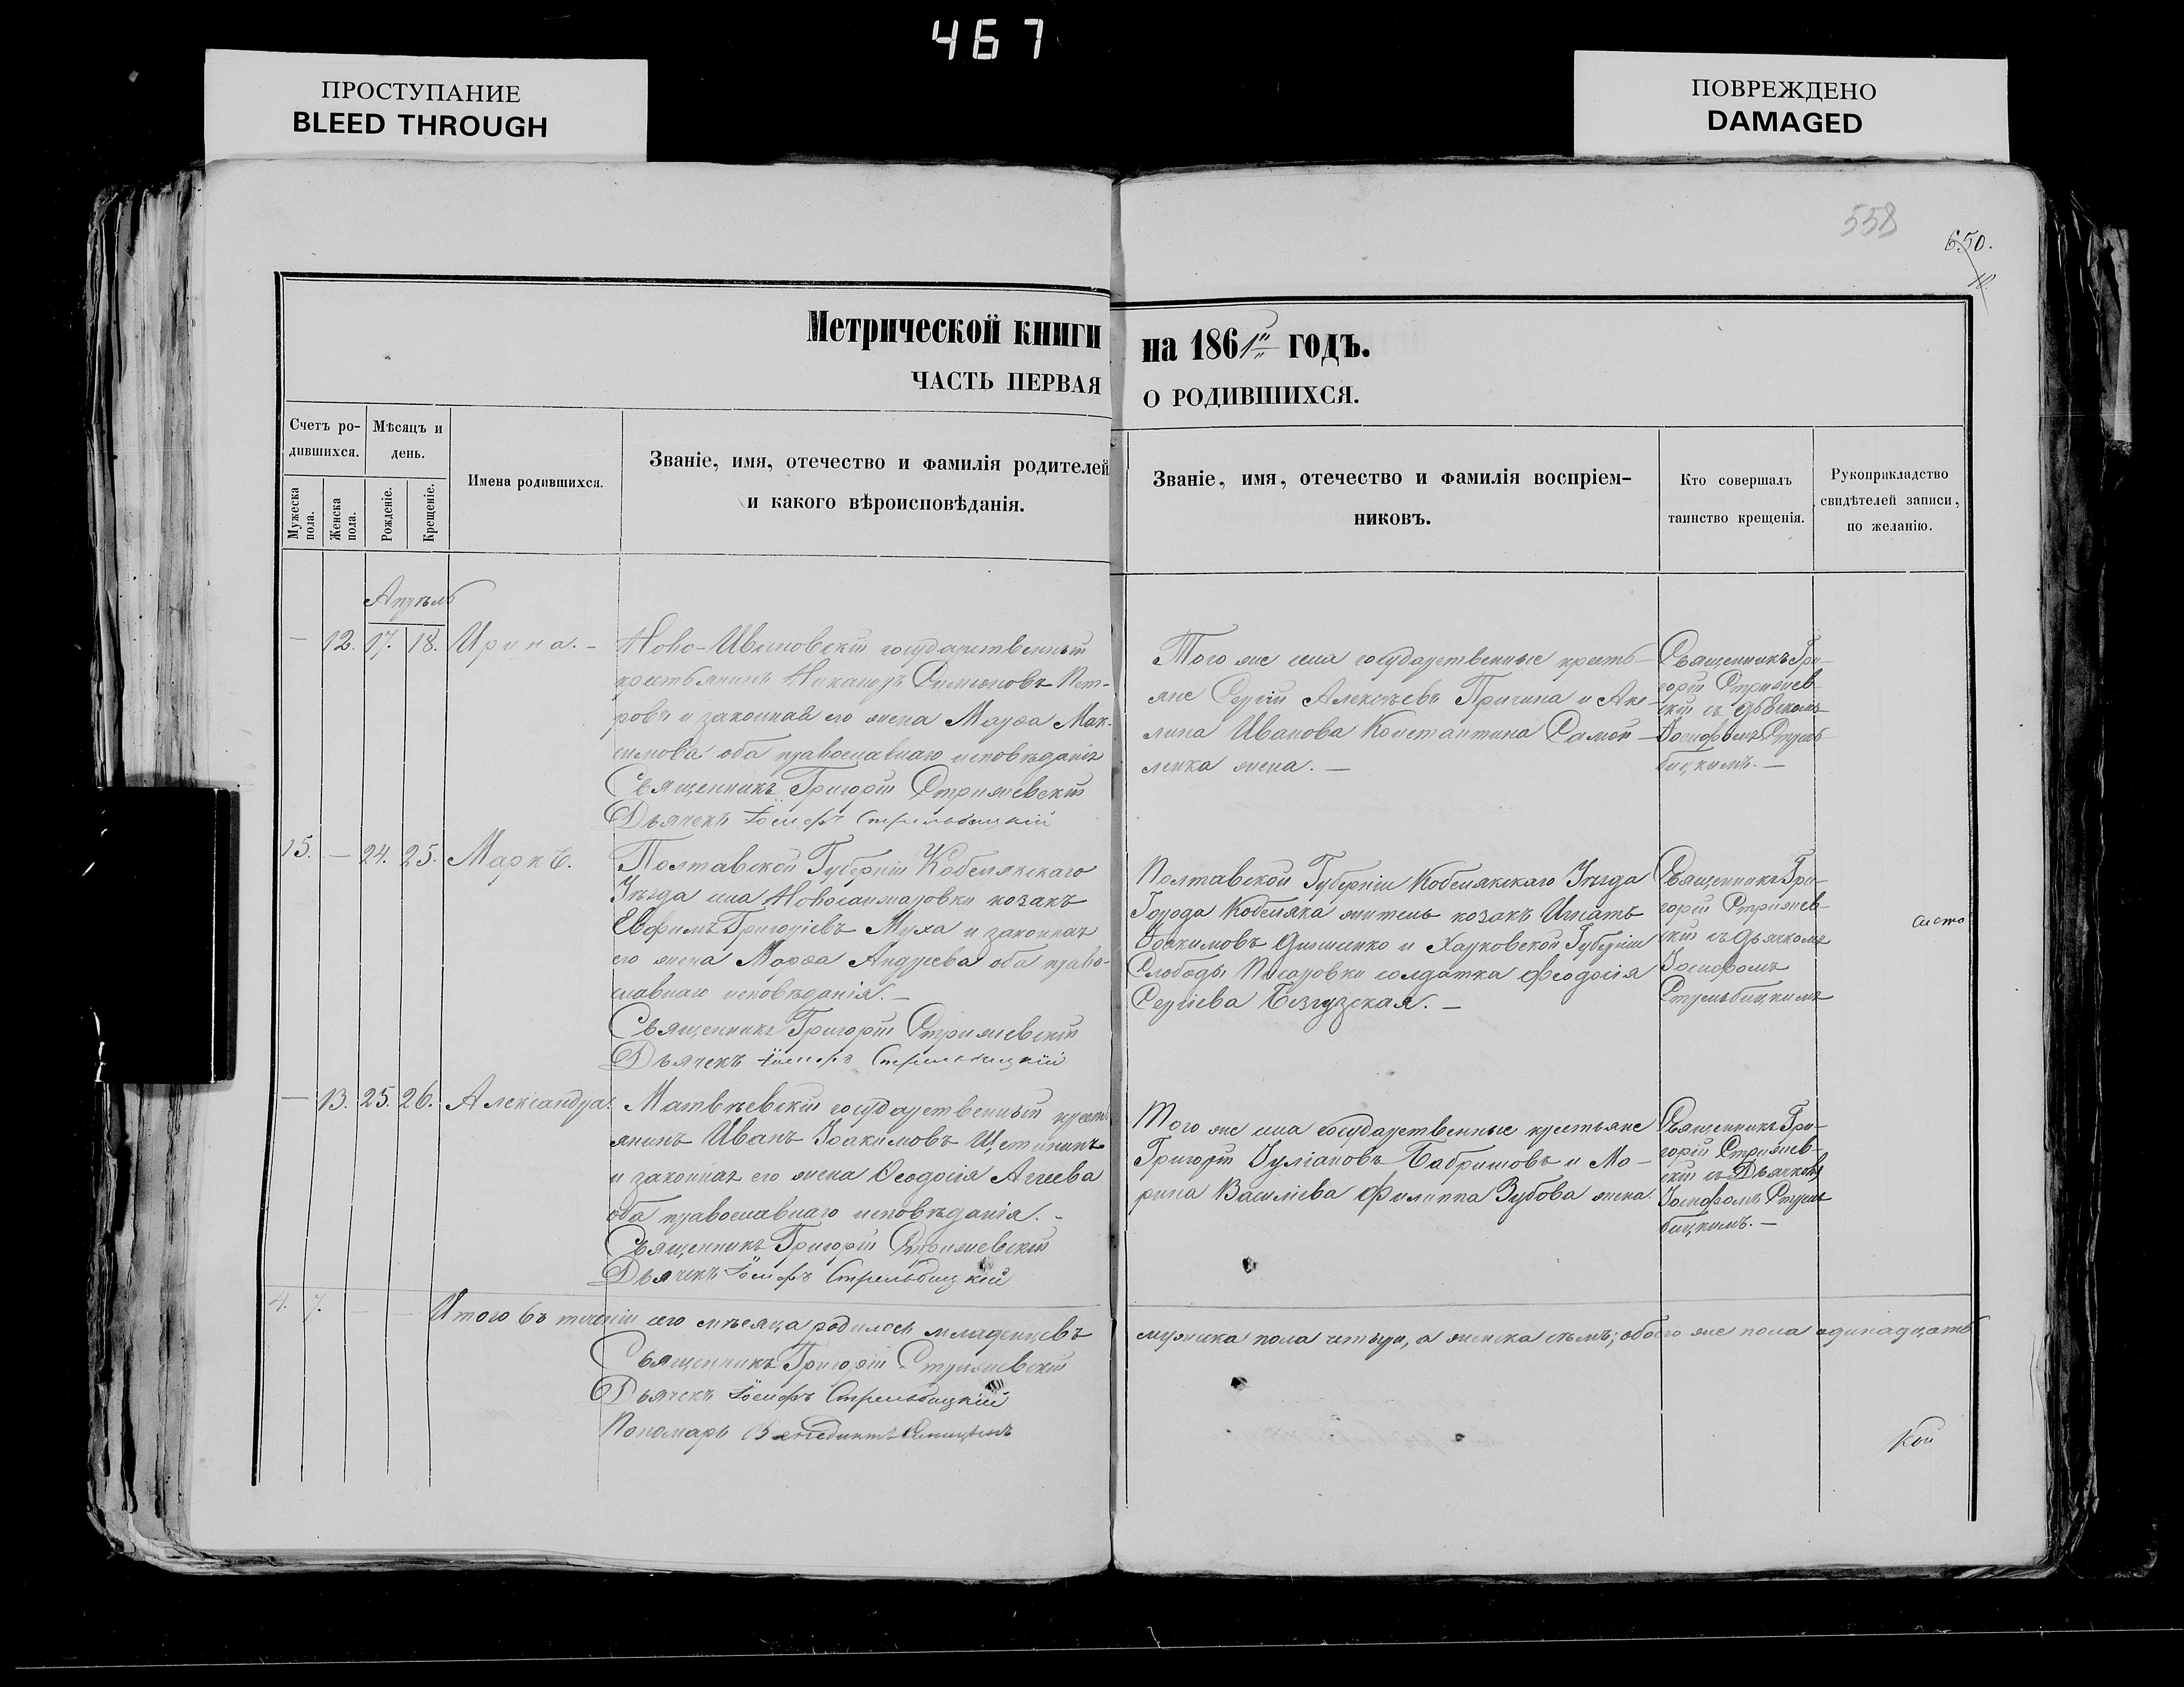 467
ПРОСТУПАНИЕ
BLEED THROUGH
ПОВРЕЖДЕНО
DAMAGED
558
650.
Метрической книги на 1861 годъ.
ЧАСТЬ ПЕРВАЯ О РОДИВШИХСЯ.
Счетъ ро-
дившихся.
Мѣсяцъ и
день.
Мужеска
пола.
Женска
пола.
Рожденіе.
Крещеніе.
Имена родившихся.
Званіе, имя, отечество и фамилія родителей
и какого вѣроисповѣданія.
Званіе, имя, отечество и фамилія воспріем-
никовъ.
Кто совершалъ
таинство крещенія.
Рукоприкладство
свидѣтелей записи,
по желанію.
Апрѣль
— 12. 17. 18. Ирина. –
Ново-Ивановскій государственный
крестьянинъ Никаноръ Симеоновъ Пет-
ровъ и законная его жена Марѳа Мак-
симова оба православнаго исповѣданія
Священникъ Григорій Стрижевскій
Дьячекъ Іосифъ Стрельбицкій
Того же села государственные кресть-
яне Сергій Алексѣевъ Пригина и Аку-
лина Иванова Константина Самой-
ленка жена. —
Священникъ Гри-
горій Стрижев-
скій съ дьячкомъ
Іосифомъ Стрель-
бицкимъ. —
15. — 24. 25. Маркъ.
Полтавской Губерніи Кобелякскаго
Уѣзда села Новосанжаровки козакъ
Евфимъ Григоріевъ Муха и законная
его жена Марѳа Андреева оба право-
славнаго исповѣданія. —
Священникъ Григорій Стрижевскій
Дьячекъ Іосифъ Стрельбицкій
Полтавской Губерніи Кобелякскаго Уѣзда
Города Кобеляка житель козакъ Игнатъ
Іоакимовъ и Харковской Губерніи
Слободы Писаровки солдатка Феодосія
Сергіева Безгузская. —
Священникъ Гри-
горій Стрижев-
скій съ дьячкомъ
Іосифомъ
Стрельбицкимъ
— 13. 25. 26. Александра.
Матвѣевскій государственный кресть-
янинъ Иванъ Іоакимовъ Щетининъ
и законная его жена Ѳеодосія Агеева
оба православнаго исповѣданія. -
Священникъ Григорій Стрижевскій
Дьячекъ Іосифъ Стрельбицкій
Того же села государственные крестьяне
Григорій Іуліановъ Бабришовъ и Ма-
рина Василіева Филиппа Зубова жена.
Священникъ Гри-
горій Стрижев-
скій съ Дьячкомъ
Іосифомъ Стрель-
бицкимъ. —
4. 7. — — Итого въ теченіи сего мѣсяца родилося младенцевъ мужеска пола четыре, а женска семь; обоего же пола одинадцать
Священникъ Григорій Стрижевскій
Дьячекъ Іосифъ Стрельбицкій
Пономарь Венедиктъ Синицынъ